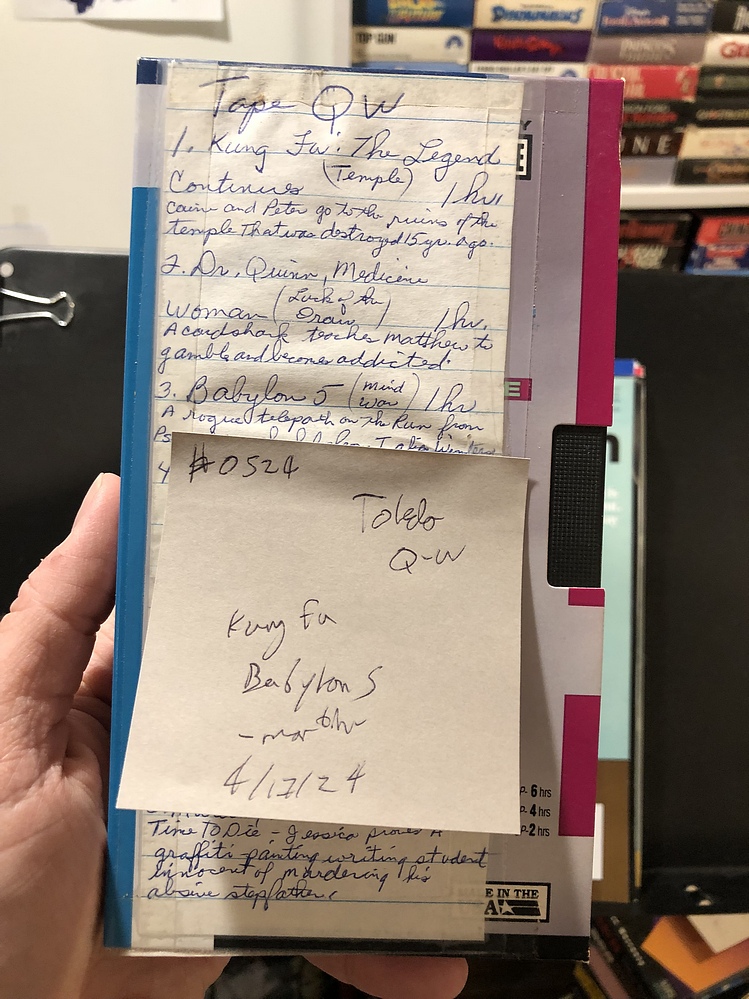 TOP GUN
Tape QW
1. Kung Fu: The Legend
Continues (Temple) 1 hr.
Caine and Peter go to the ruins of the
temple that was destroyed 15 yr. ago.
2. Dr. Quinn, Medicine
Woman (Luck of the Draw) 1 hr.
A cardshark teaches Matthew to
gamble and becomes addicted.
3. Babylon 5 (Mind War) 1 hr
A rogue telepath on the run from
4
#0524
Toledo
Q-W
Kung Fu
Babylon 5
4/17/24
Time To Die - Jessica proves a
graffiti-painting writing student
innocent of murdering his
abusive stepfather.
6 hrs
4 hrs
2 hrs
MADE IN THE